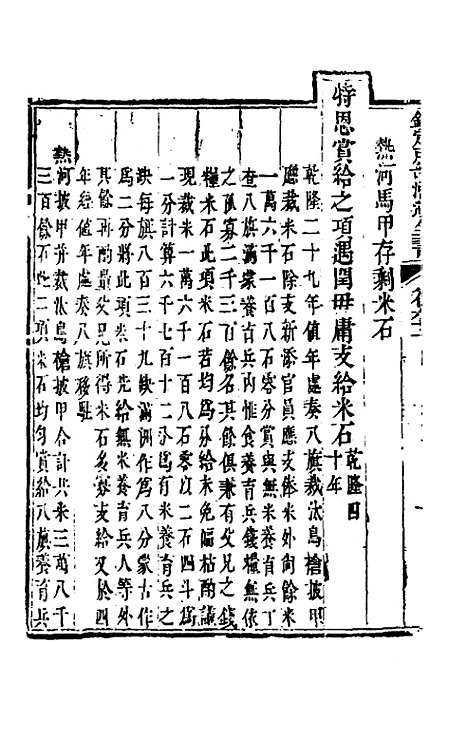 熱河馬甲存剩米石
特恩賞給之項遇閏毋庸支給米石乾隆四
十年
乾隆二十九年值年處奏八旗裁汰鳥槍披甲
應裁米石除支新添官員應支俸米外尚餘米
一萬六千一百八石零分賞與無米養育兵丁
查八旗滿蒙養育兵內惟養育兵錢糧無依
之孤寡二千三百餘名其餘俱兼有父兄之錢
糧米石若均爲分給未免偏枯酌議
現裁米一萬六千一百八石零以二石四斗爲
一分計算六千七百十二分爲有米養育兵之
缺每旗八百三十九缺滿洲作爲八分蒙古作
爲二分將此項米石先給無米養育兵人等外
其餘再酌量兄所得米石多寡支給又於四
年經值年處奏八旗移駐
熱河披甲並裁汰鳥槍披甲合計共米三萬八千
三百餘石此二項米石均勻賞給八旗養育兵